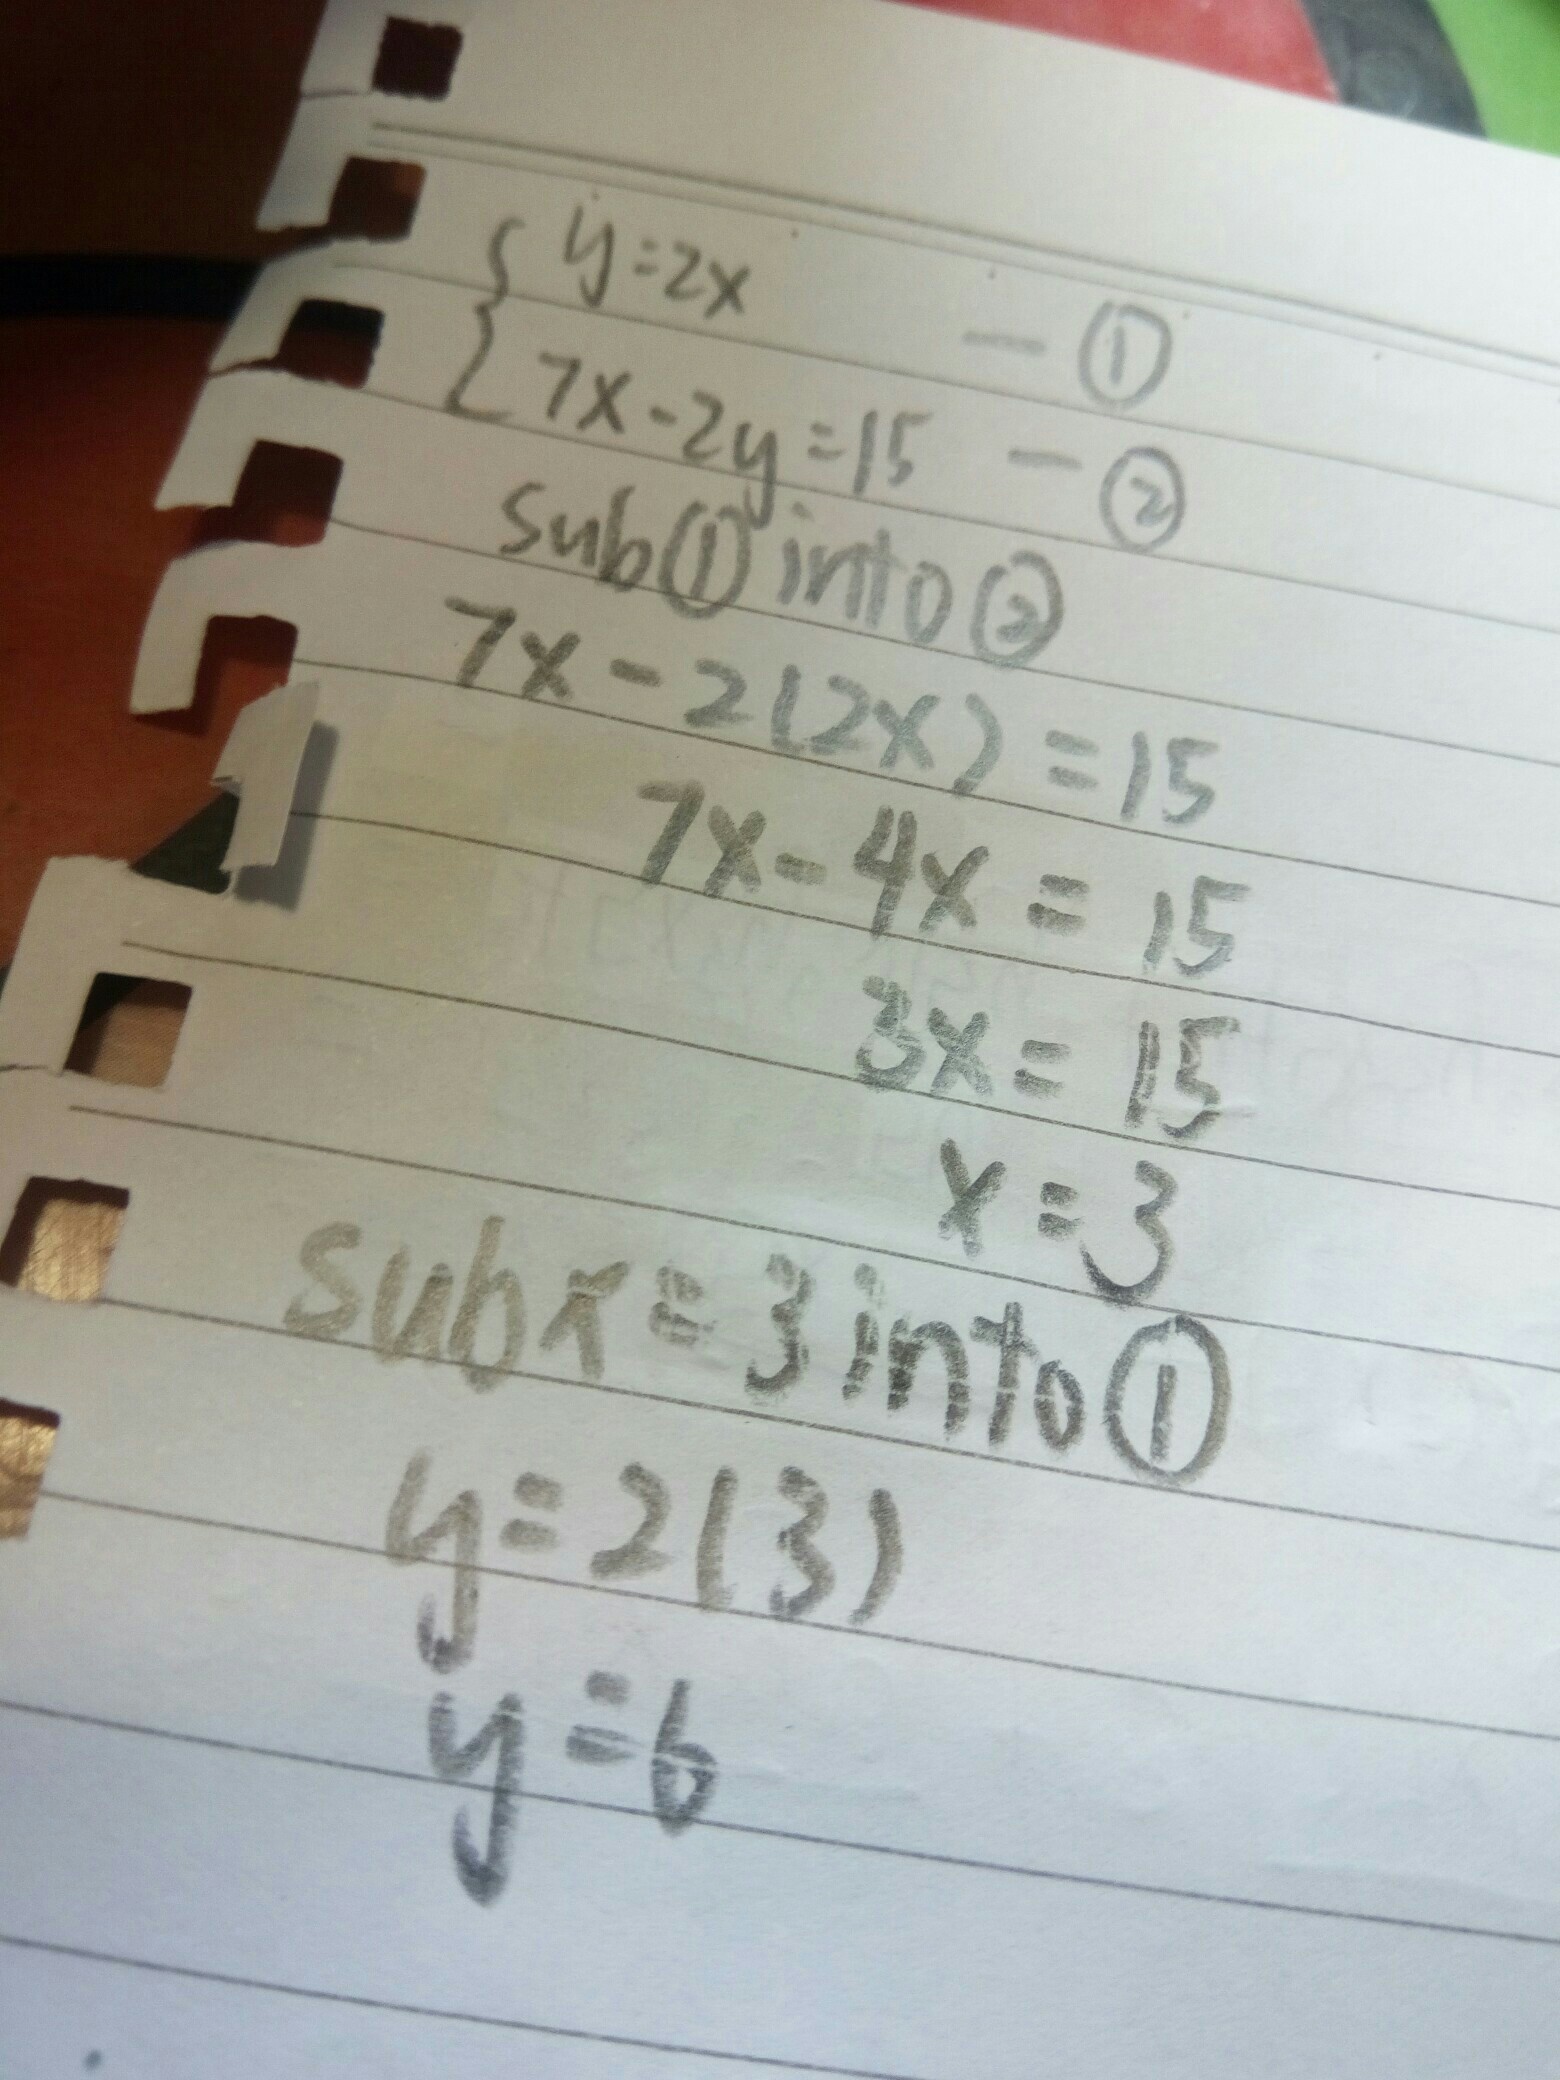 y=2x — ①
7x-2y=15 — ②
sub ① into ②
7x - 2(2x) = 15
7x - 4x = 15
3x = 15
x = 3
sub x = 3 into ①
y = 2(3)
y = 6